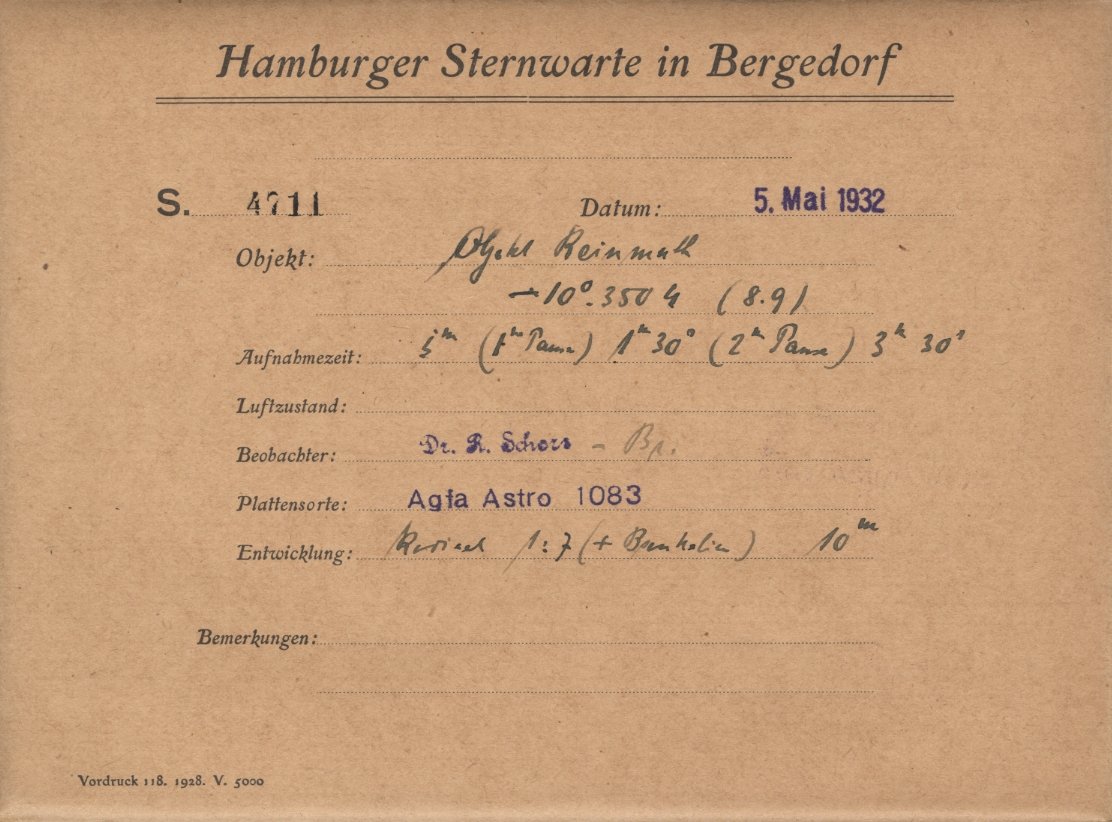 Hamburger Sternwarte in Bergedorf
S. 4711 Datum: 5. Mai 1932
Objekt: Objekt Reinmuth
(8.9)
Aufnahmezeit: 5ᵐ (1ᵐ Pause) 1ᵐ 30ˢ (2ᵐ Pause) 3ᵐ 30ˢ
Luftzustand:
Beobachter: Dr. R. Schorr –
Plattensorte: Agfa Astro 1083
Entwicklung: 1:7 10ᵐ
Bemerkungen:
Vordruck 118. 1928. V. 5000